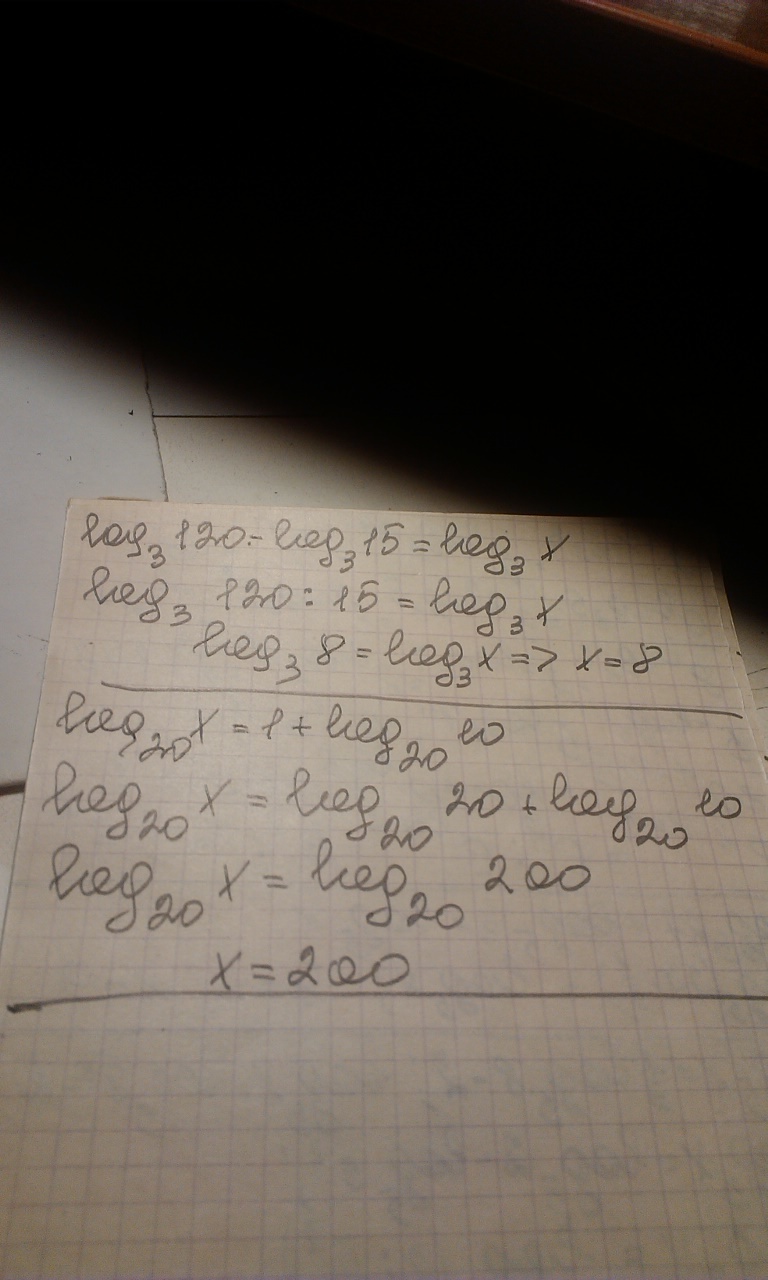 log₃ 120 - log₃ 15 = log₃ x
log₃ 120 : 15 = log₃ x
log₃ 8 = log₃ x => x = 8
log₂₀ x = 1 + log₂₀ 10
log₂₀ x = log₂₀ 20 + log₂₀ 10
log₂₀ x = log₂₀ 200
x = 200